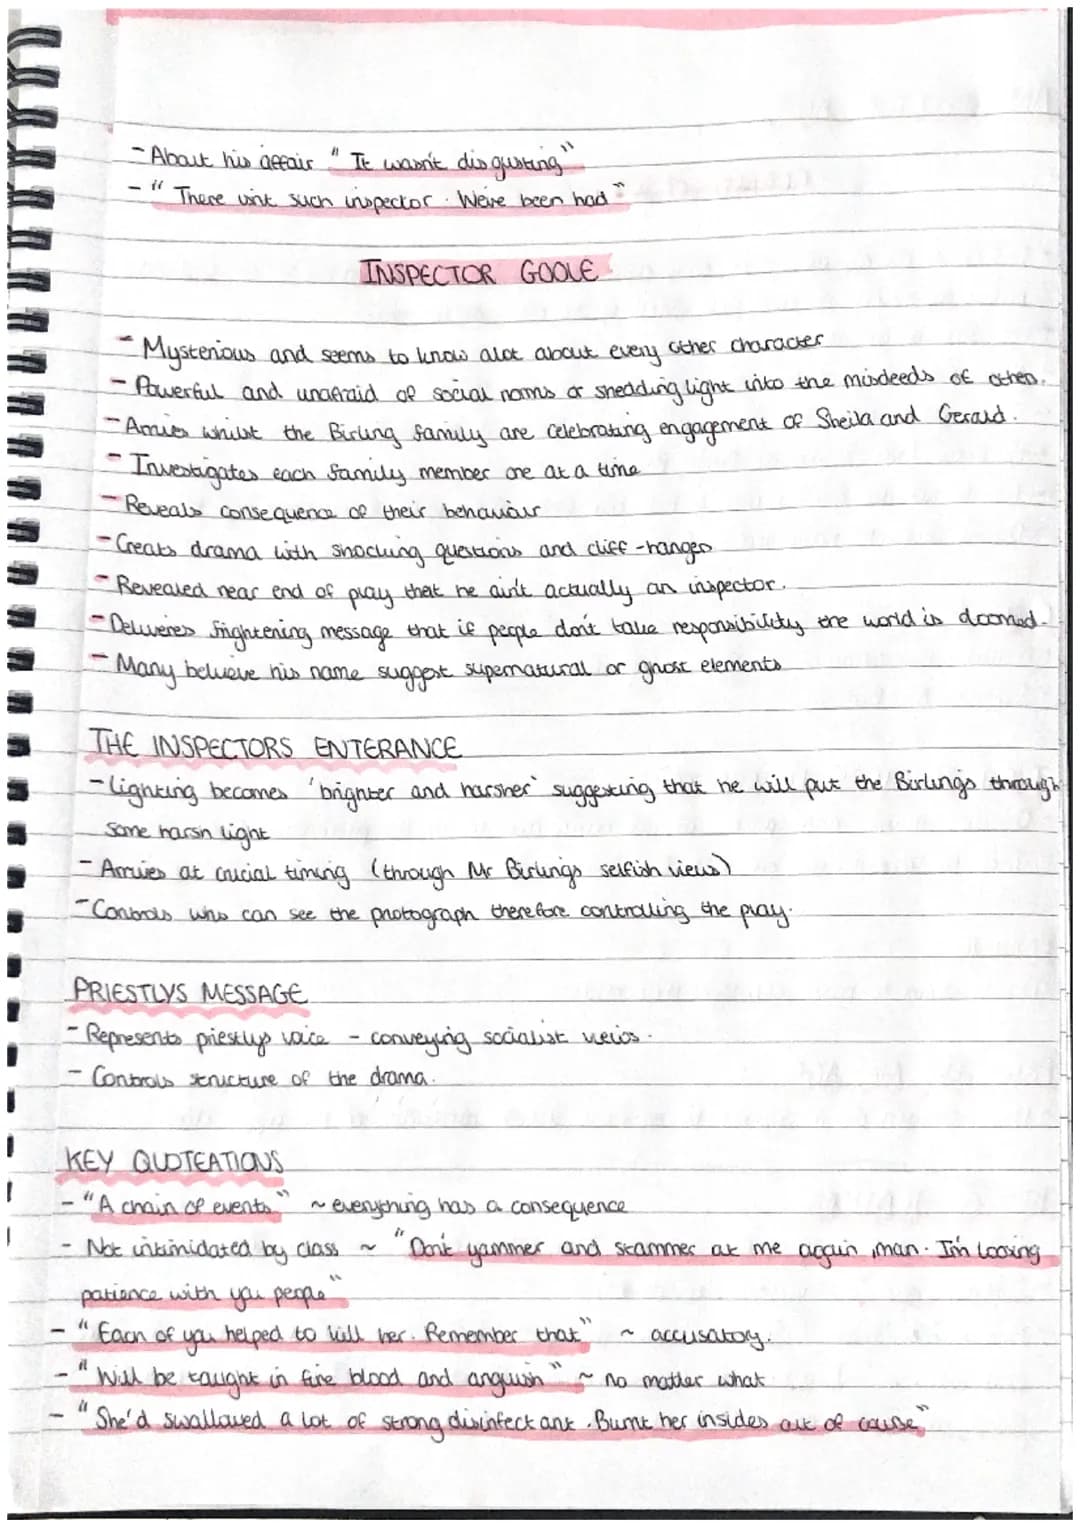 - About his affair " It wasn't disgusting"
- " There isn't such inspector. We've been had "
INSPECTOR GOOLE
- Mysterious and seems to know alot about every other character
- Powerful and unafraid of social norms or shedding light into the misdeeds of others.
- Arrives whilst the Birling family are celebrating engagement of Sheila and Gerald.
- Investigates each family member one at a time
- Reveals consequence of their behaviour
- Creats drama with shocking questions and cliff-hangers
- Revealed near end of play that he ain't actually an inspector.
- Deliveres frightening message that if people don't take responsibility the world is doomed.
- Many believe his name suggest supernatural or ghost elements
THE INSPECTORS ENTERANCE
- Lighting becomes 'brighter and harsher' suggesting that he will put the Birling's through
some harsh light
- Arrives at crucial timing (through Mr Birling's selfish views)
- Controls who can see the photograph therefore controlling the play.
PRIESTLYS MESSAGE
- Represents priestlys voice - conveying socialist veiws.
- Controls structure of the drama.
KEY QUOTEATIONS
- "A chain of events" ~ everything has a consequence
- Not intimidated by class ~ "Don't yammer and stammer at me again, man. I'm loosing
patience with you people"
- "Each of you helped to kill her. Remember that" ~ accusatory.
- "Will be taught in fire blood and anguish" ~ no matter what
- "She'd swallowed a lot of strong disinfectant. Burnt her insides out of course"